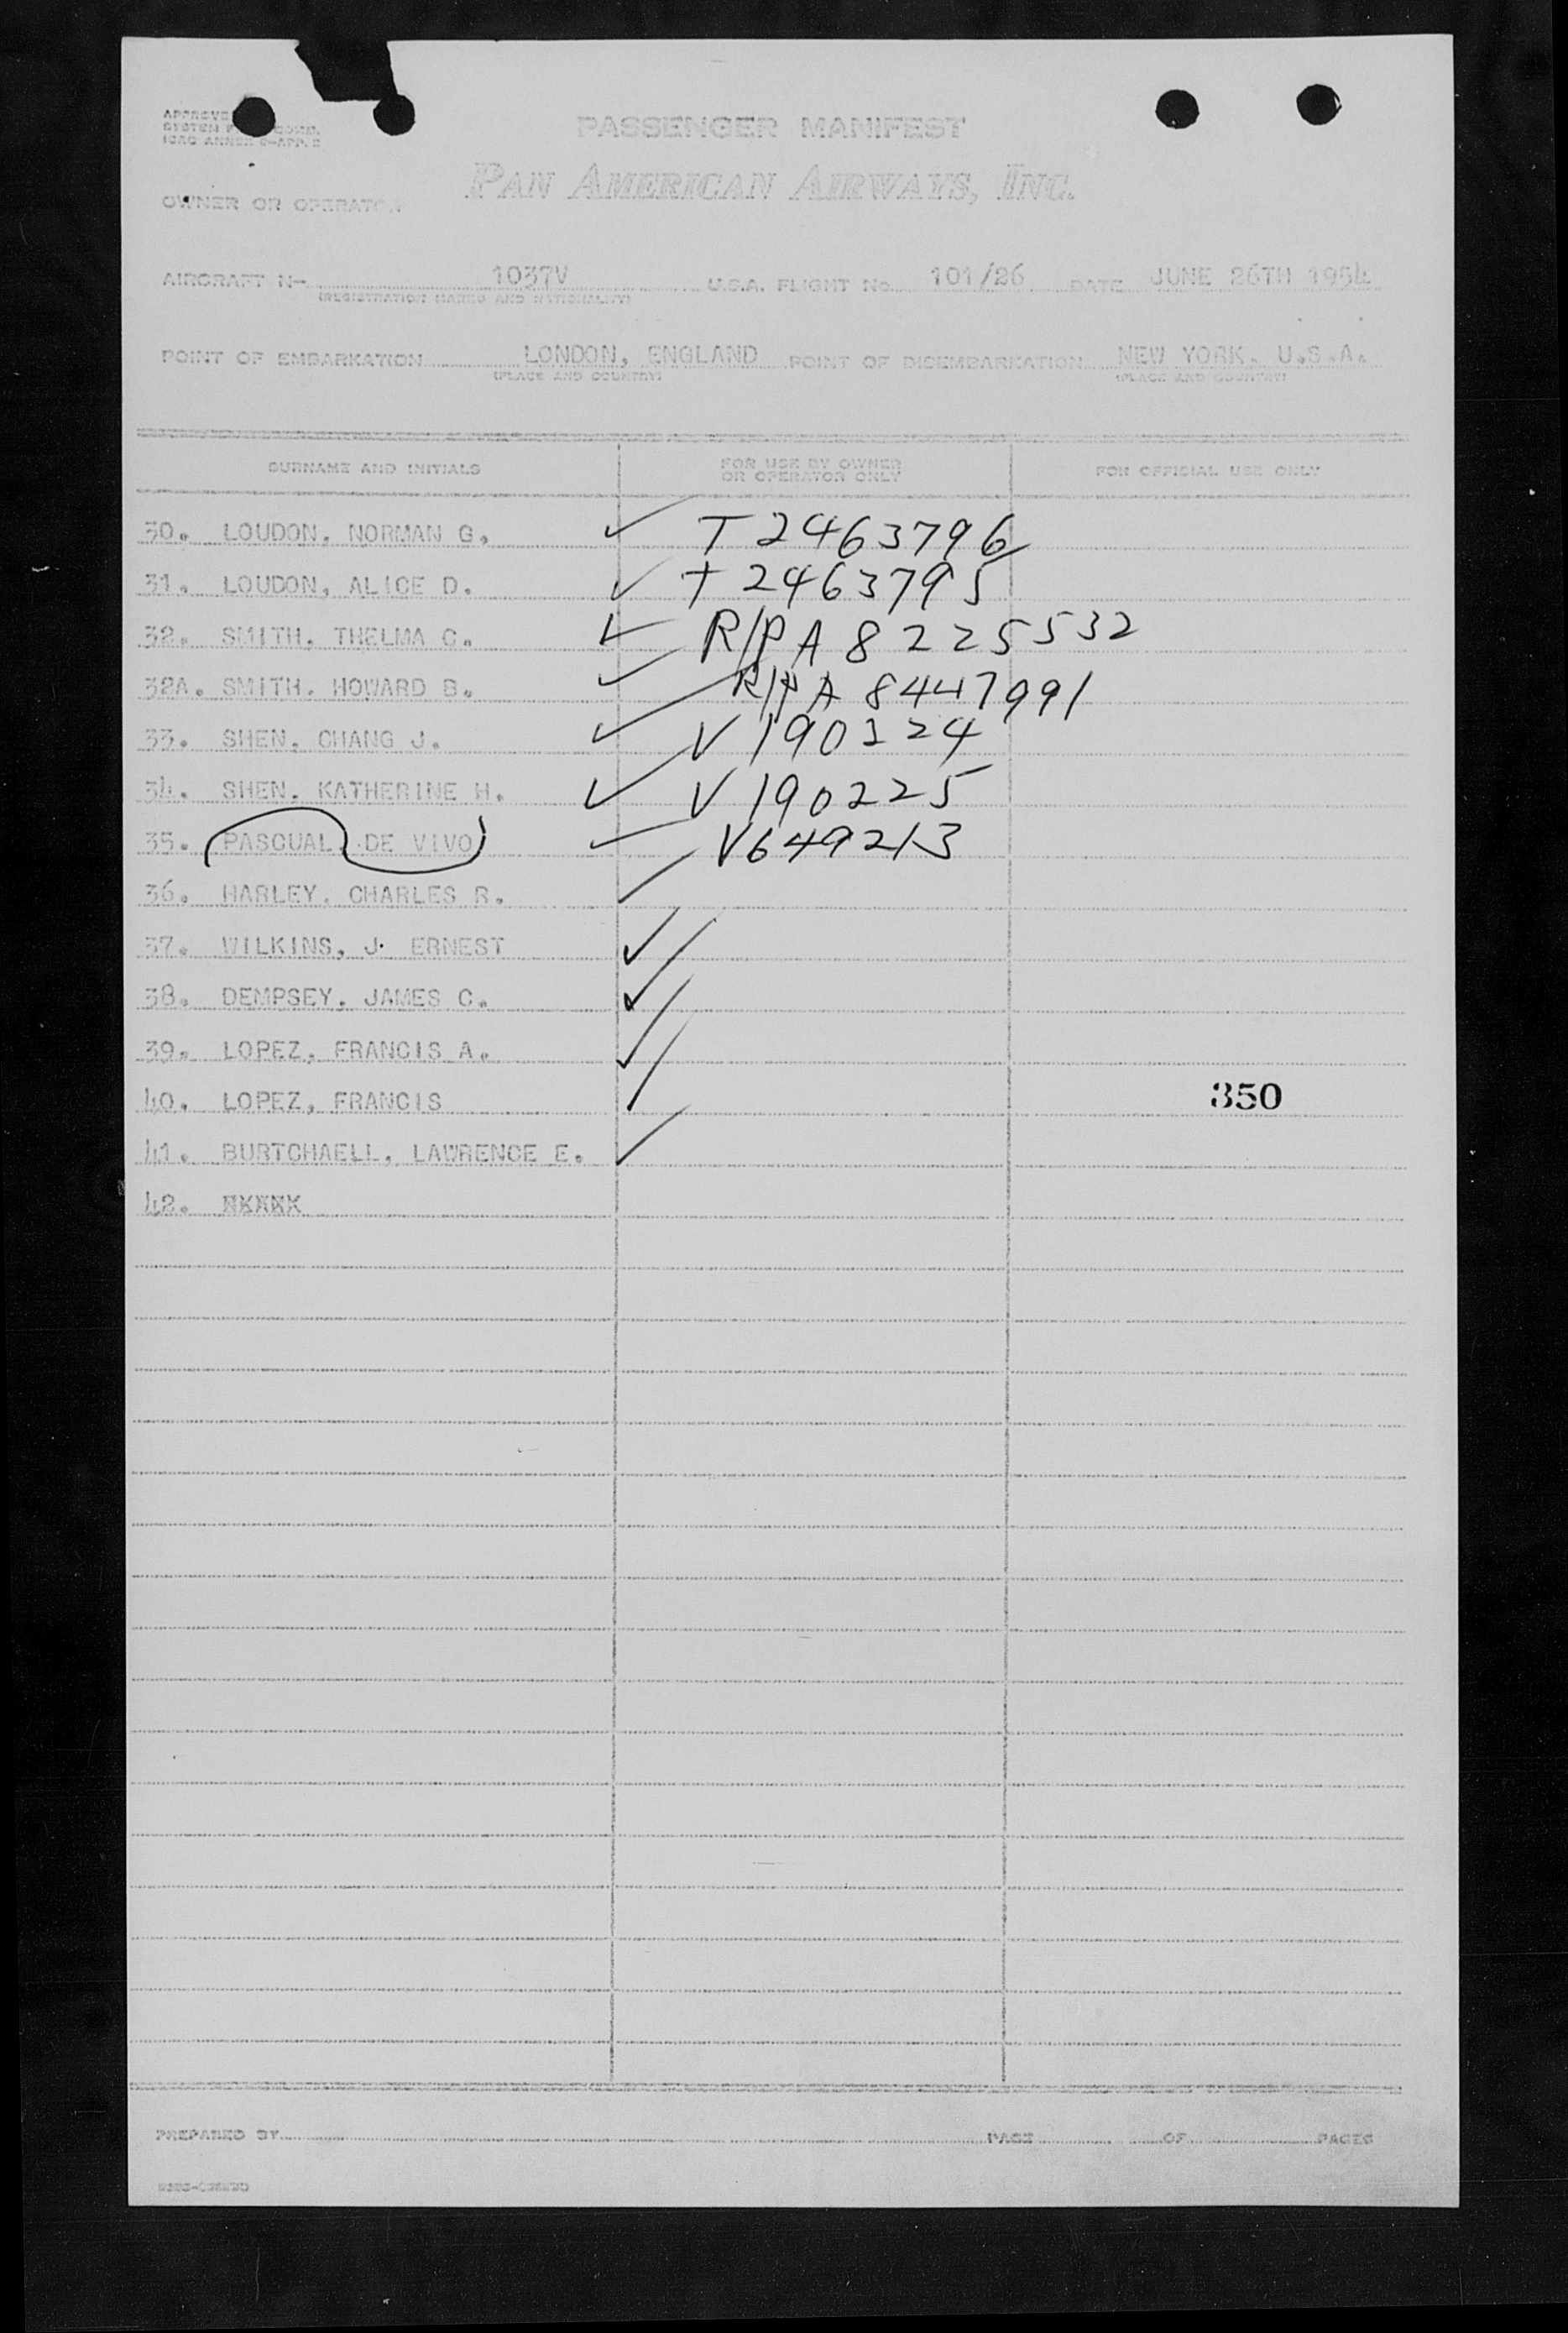 PASSENGER MANIFEST
PAN AMERICAN AIRWAYS, INC.
OWNER OR OPERATOR
AIRCRAFT No 1037V U.S.A. FLIGHT No. 101/26 DATE JUNE 26TH 1954
(REGISTRATION MARKS AND NATIONALITY)
POINT OF EMBARKATION LONDON, ENGLAND POINT OF DISEMBARKATION NEW YORK. U.S.A.
(PLACE AND COUNTRY) (PLACE AND COUNTRY)
SURNAME AND INITIALS FOR USE BY OWNER OR OPERATOR ONLY FOR OFFICIAL USE ONLY
30. LOUDON, NORMAN G. ✓ T 2463796
31. LOUDON, ALICE D. ✓ T 2463795
32. SMITH, THELMA C. ✓ R/P A 8225532
32A. SMITH, HOWARD B. ✓ R/P A 8447991
33. SHEN, CHANG J. ✓ V 190224
34. SHEN, KATHERINE H. ✓ V 190225
35. PASCUAL, DE VIVO ✓ V649213
36. HARLEY, CHARLES R.
37. WILKINS, J. ERNEST ✓
38. DEMPSEY, JAMES C. ✓
39. LOPEZ, FRANCIS A. ✓
40. LOPEZ, FRANCIS 350
41. BURTCHAELL, LAWRENCE E.
42.
PREPARED BY PAGE OF PAGES